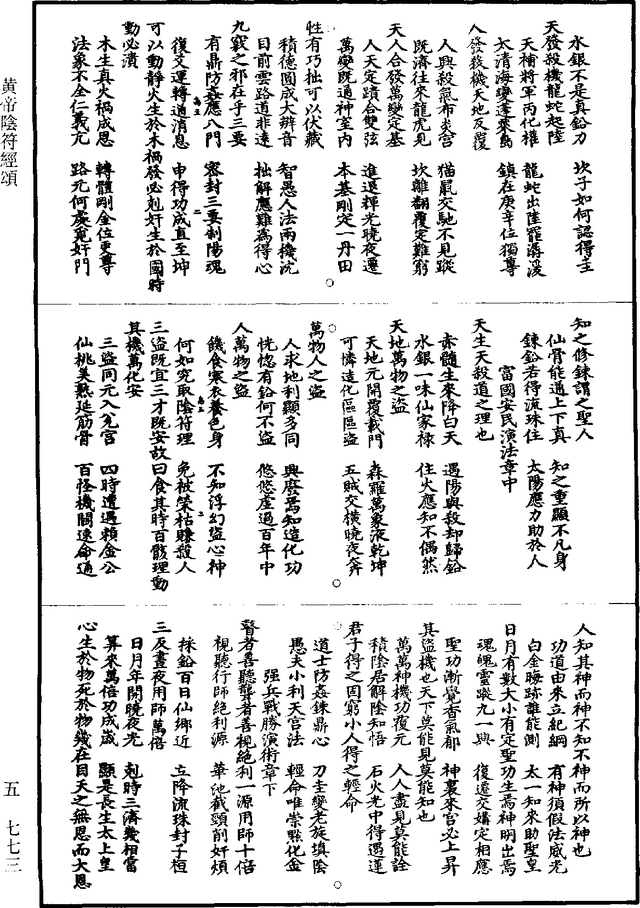 水銀不是真鉛刀　坎子如何認得主
天發殺機龍蛇起陸
天補將軍丙化權　龍蛇出陸罷潺湲
太清海變蓬萊島　鎮在庚辛位獨尊
人發殺機天地反覆
人興殺氣布炎宮　猫鼠交馳不見蹤
既濟往來龍虎見　坎離翻覆定難窮
天人合發萬變定基
人天定蹟合雙弦　進退輝光曉夜遷
萬變既通神室內　本基剛定一丹田
性有巧拙可以伏藏
積德圓成大辨音　智愚人法兩機沈
目前雲路道非遠　拙解應難為得心
九竅之邪在乎三要
有鼎防姦應八門　密封三要制陽魂
復交運轉通消息　申得功成直至坤
可以動靜火生於木禍發必剋奸生於國時
動必潰
木生真火禍成恩　轉體剛金位更尊
法象不全仁義亢　路元何處覓奸門
知之修鍊謂之聖人
仙骨能通上下真　知之重顯不凡身
鍊鉛若得流珠住　太陽應力助於人
富國安民演法章中
天生天殺道之理也
赤髓生來降白天　遇陽與殺却歸鉛
水銀一味仙家祿　住火應知不偶然
天地萬物之盜
天地元開覆載門　森羅萬象液乾坤
可憐造化區區盜　五賊交橫曉夜奔
萬物人之盜
人求地利顯多同　興廢焉知造化功
恍惚有鉛何不盜　悠悠虛過百年中
人萬物之盜
饑食寒衣養色身　不知浮幻盜心神
何如究取陰符理　免被榮枯賺殺人
三盜既宜三才既安故曰食其時百骸理動
其機萬化安
三盜同元入兌宮　四時遭遇賴金公
仙桃美熟延筋骨　百怪機關速命通
人知其神而神不知不神而所以神也
功道由來立紀綱　有神須假法威光
白金晦跡誰能測　太一知來助聖皇
日月有數大小有定聖功生焉神明出焉
瑰魄靈蹤九一興　復遷交媾定相應
聖功漸覺香氣郁　神裏來宮必上昇
其盜機也天下莫能見莫能知也
萬萬神機功復元　人人盡見莫能詮
積陰居解陰知悟　石火光中得遇運
君子得之固窮小人得之輕命
道士防姦鍊鼎心　刀圭變老旋填陰
愚夫小利天官法　輕命唯崇點化金
強兵戰勝演術章下
瞽者善聽聾者善視絕利一源用師十倍
視聽行師絕利源　華池截頸削奸煩
採鉛百日仙鄉近　立降流珠封子桓
三反晝夜用師萬倍
日月年開曉夜光　剋時三濟幾相當
算來萬倍功成歲　顯是長生太上皇
心生於物死於物機在目天之無恩而大恩
黃帝陰符經頌
五　七七三